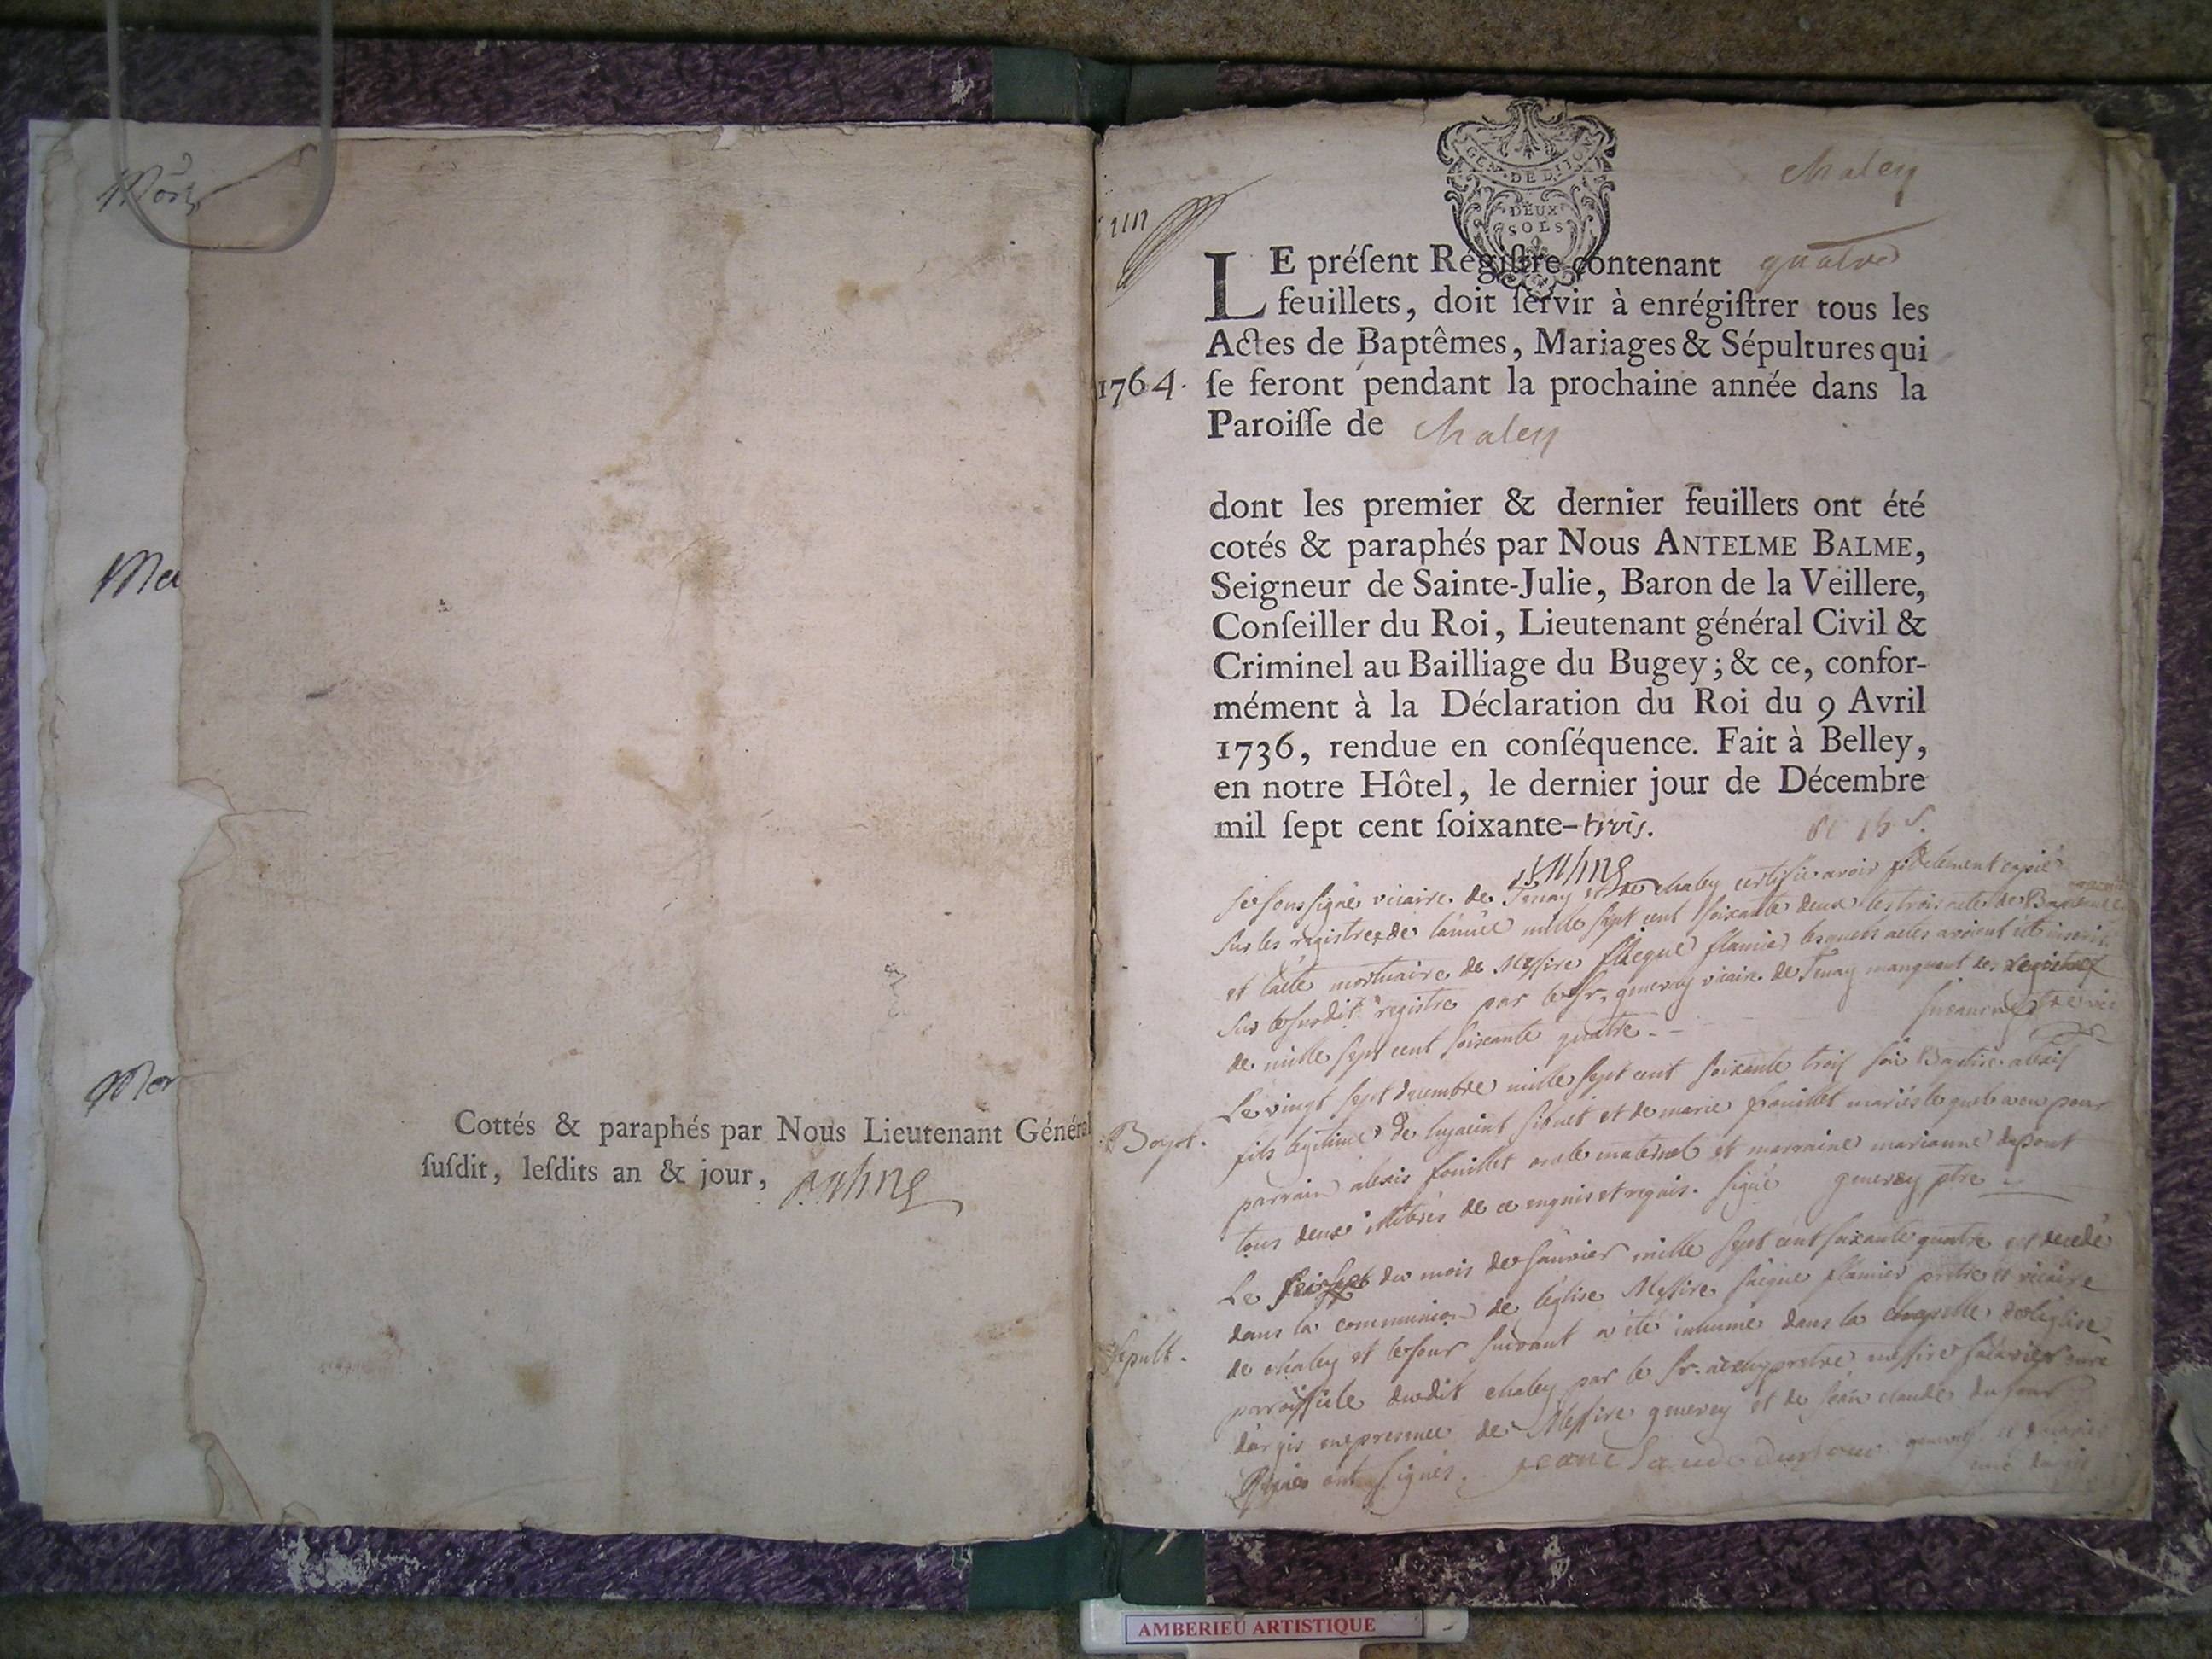 Mort
Ma
Mor
Cottés & paraphés par Nous Lieutenant Général
ſuſdit, leſdits an & jour,
GEN. DE DIJON
DEUX
SOLS
chaley
LE préſent Régiſtre contenant quatre
feuillets, doit ſervir à enrégiſtrer tous les
Actes de Baptêmes, Mariages & Sépultures qui
1764. ſe feront pendant la prochaine année dans la
Paroiſſe de chaley
dont les premier & dernier feuillets ont été
cotés & paraphés par Nous ANTELME BALME,
Seigneur de Sainte-Julie, Baron de la Veillere,
Conſeiller du Roi, Lieutenant général Civil &
Criminel au Bailliage du Bugey; & ce, confor-
mément à la Déclaration du Roi du 9 Avril
1736, rendue en conſéquence. Fait à Belley,
en notre Hôtel, le dernier jour de Décembre
mil ſept cent ſoixante-trois.
soussigné vicaire de Tenay et de chaley certifie avoir fidelement copié
sur les registres de l'année mille sept cent soixante deux les trois acte de
et l'acte mortuaire de Messire flamier lesquels actes avoient été inscrit
sur le susdit registre par le sr. genevey vicaire de Tenay manquant de registres
de mille sept cent soixante quatre
Le vingt sept decembre mille sept cent soixante trois alexis
Bapt. fils legitime de hyacint sibuet et de marie fouillet mariés lequel a eu pour
parrain alexis fouillet oncle maternel et marraine marianne dupont
tous deux illitérés de ce enquis et requis. signé genevey ptre
Le du mois de janvier mille sept cent soixante quatre est decedé
dans la communion de l'eglise Messire flamier pretre et vicaire
Sepult. de chaley et le jour suivant a été inhumé dans la chapelle de l'eglise
parroissiale dudit chaley par le sr. messire curé
d'argis en presence de Messire genevey et de jean claude dufour
ont signés. jean claude dufour genevey
curé d'argis
AMBERIEU ARTISTIQUE